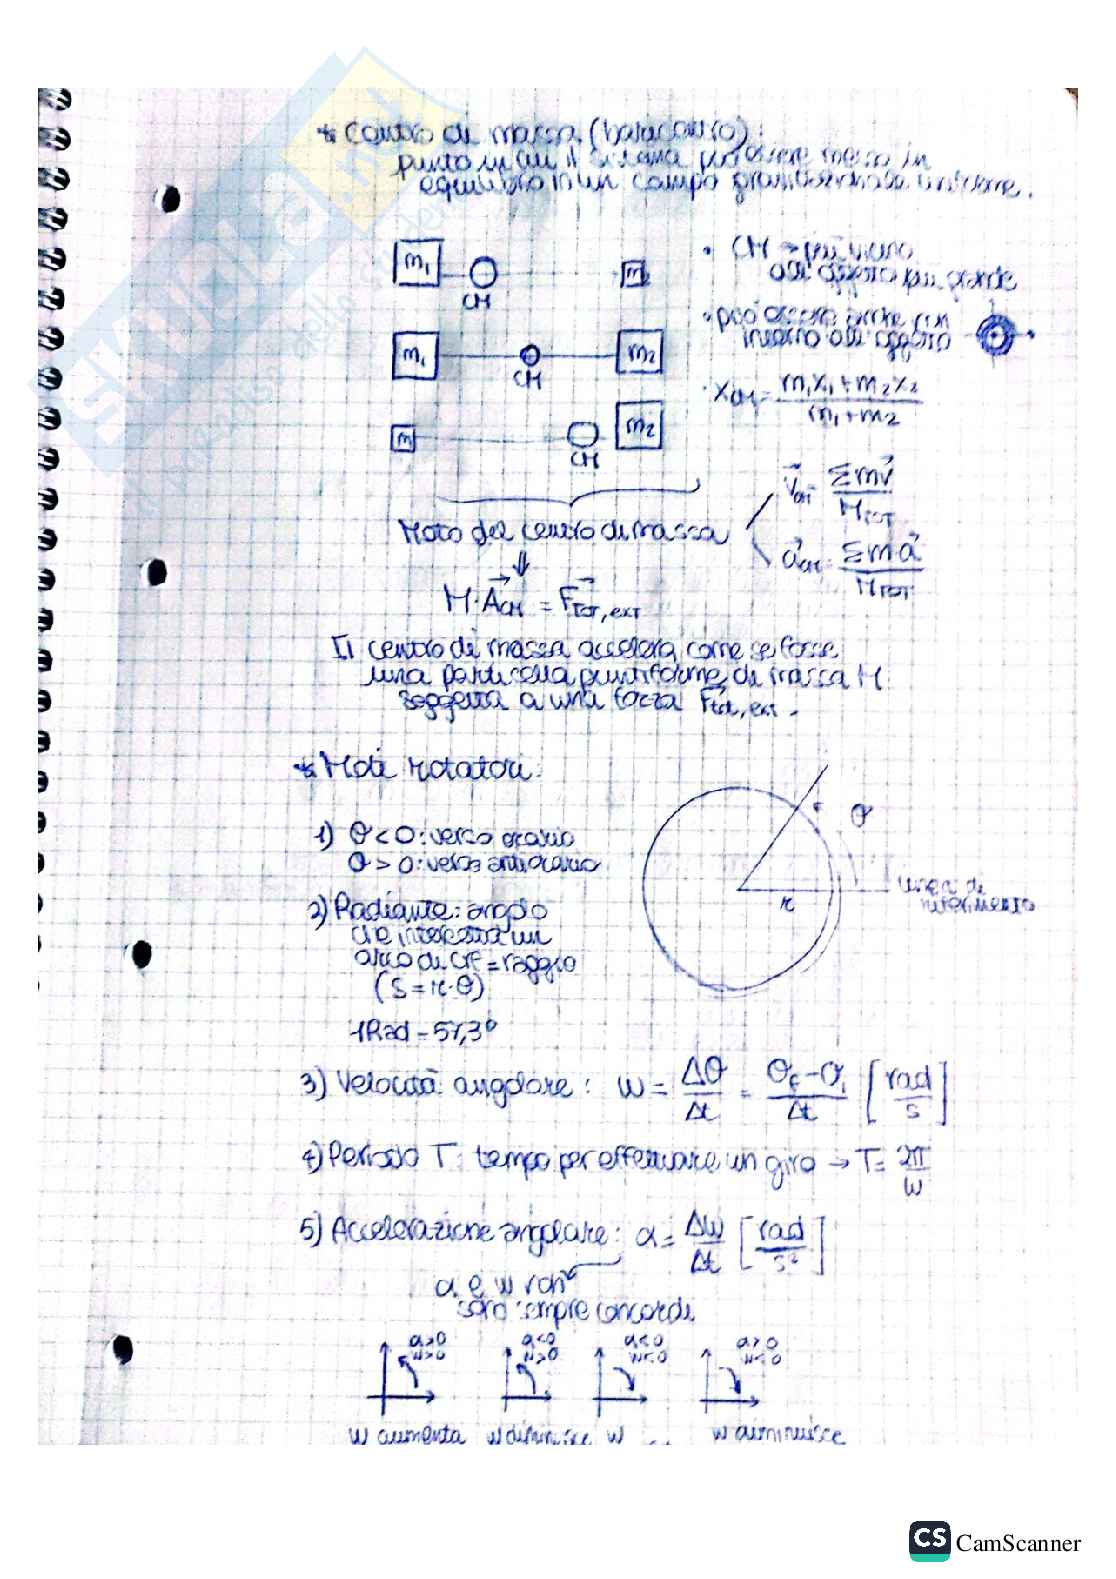 * Centro di massa (baricentro):
punto in cui il sistema può essere messo in
equilibrio in un campo gravitazionale uniforme.
m1 CM m
• CM → più vicino
all'oggetto più grande
• può essere anche non
interno all'oggetto
m1 CM m2
• XCM = m1x1 + m2x2 / m1 + m2
m CM m2
Moto del centro di massa
VCM = Σmv / MTOT
aCM = Σma / MTOT
⇓
M·ACM = FTOT,EXT
Il centro di massa accelera come se fosse
una particella puntiforme di massa M
soggetta a una forza Ftot,ext.
* Moti rotatori:
1) θ < 0: verso orario
θ > 0: verso antiorario
θ
r
linea di
riferimento
2) Radiante: angolo
che intercetta un
arco di crf = raggio
(S = r·θ)
1Rad = 57,3°
3) Velocità angolare: w = Δθ/Δt = θf - θi / Δt [rad/s]
4) Periodo T: tempo per effettuare un giro → T = 2π/w
5) Accelerazione angolare: α = Δw/Δt [rad/s²]
α e w non
sono sempre concordi
α>0 w>0
α<0 w>0
α<0 w<0
α>0 w<0
w aumenta w diminuisce w w diminuisce
SKUOLA.net
CS CamScanner